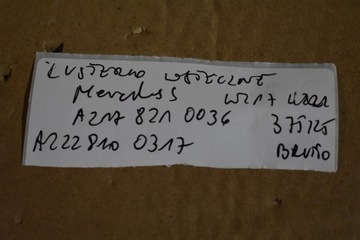 LUSTERKO WSTECZNE
Mercedes W217 W222
A217 821 0036 375125
A222 810 0317